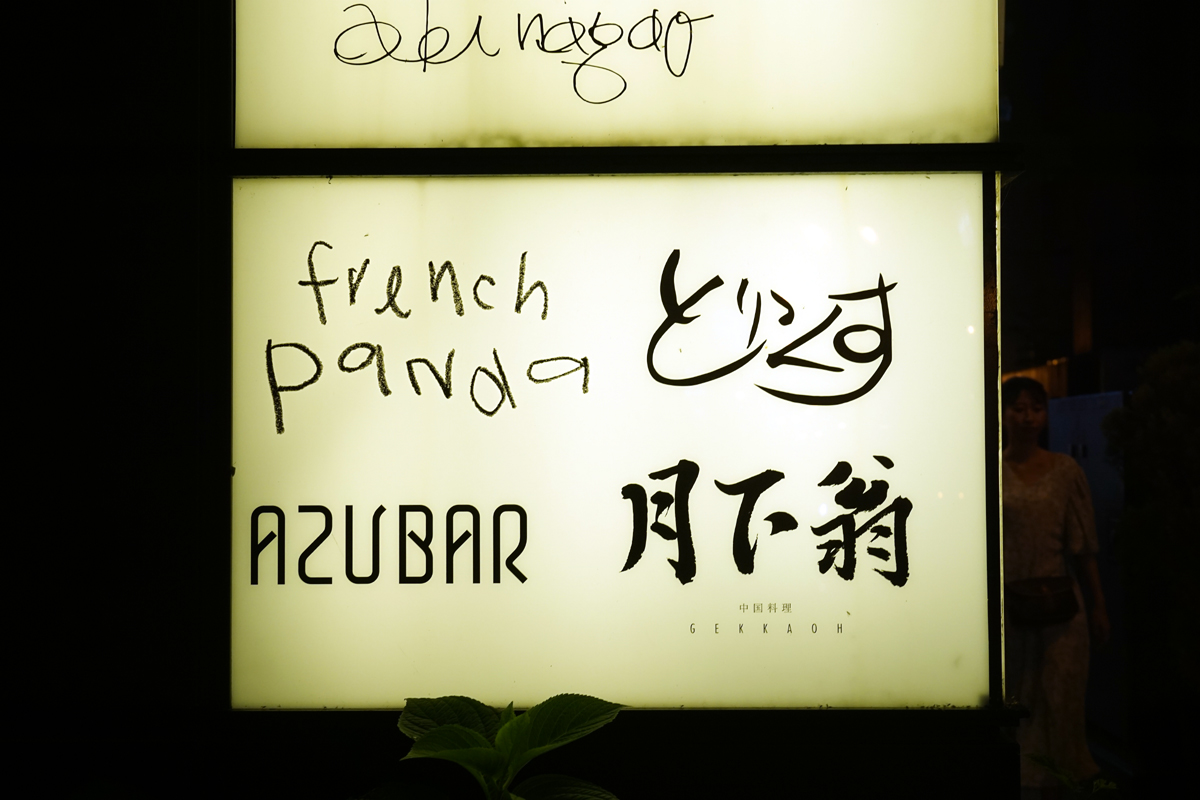 french
panda
とりくす
AZUBAR
月下翁
中国料理
GEKKAOH